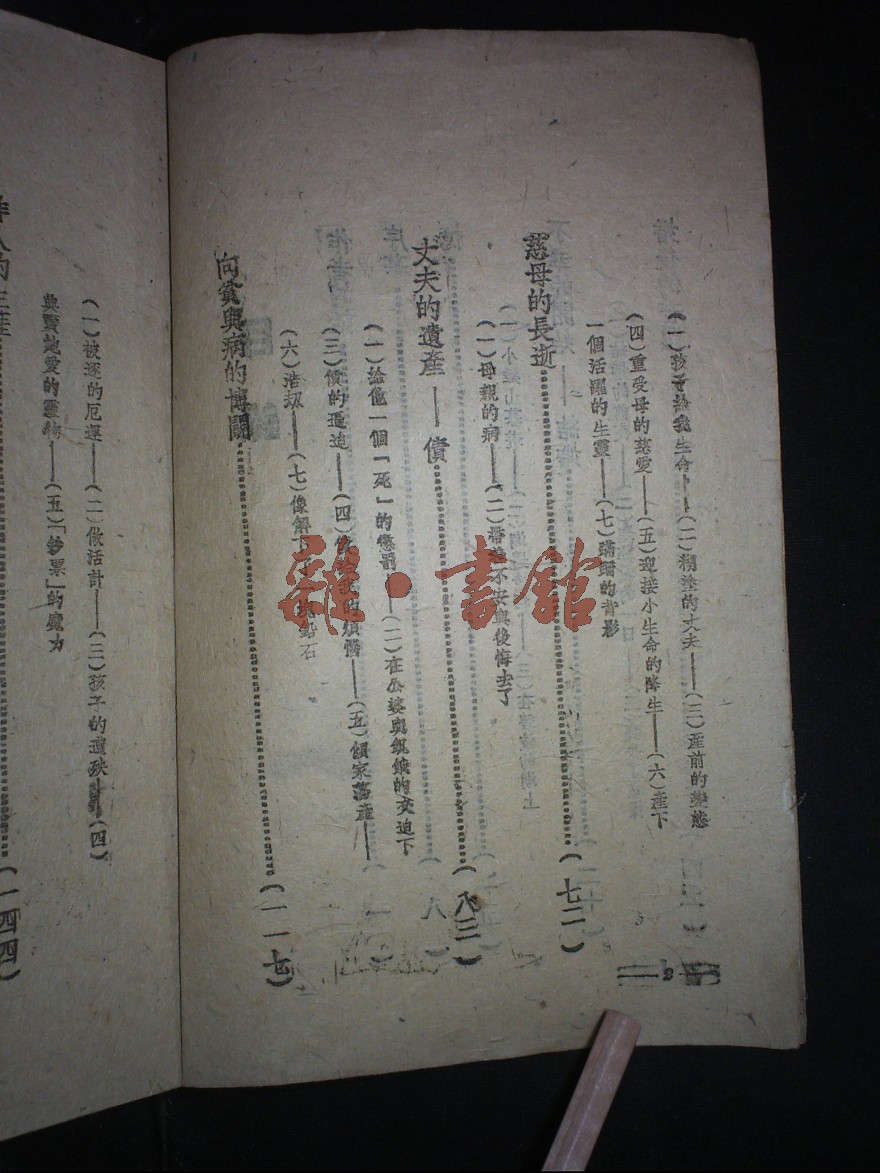 (一)孩子給我生命——(二)糊塗的丈夫——(三)產前的變態
(四)重受母的慈愛——(五)迎接小生命的降生——(六)產下
一個活躍的生靈——(七)蹣跚的背影
慈母的長逝(七二)
(一)母親的病——(二)帶着不安與後悔去了
丈夫的遺產——債(八三)
(一)給他一個「死」的懲罰——(二)在公婆與飢餓的交迫下
(三)債的逼迫——(四)的煩惱——(五)傾家蕩產——
(六)浩劫——(七)像解下了塊鉛石
向貧與病的搏鬭(一一七)
(一)被逐的厄運——(二)做活計——(三)孩子的遺殃——(四)
典賣她愛的靈物——(五)「鈔票」的魔力
(一四四)
2
龍·書館